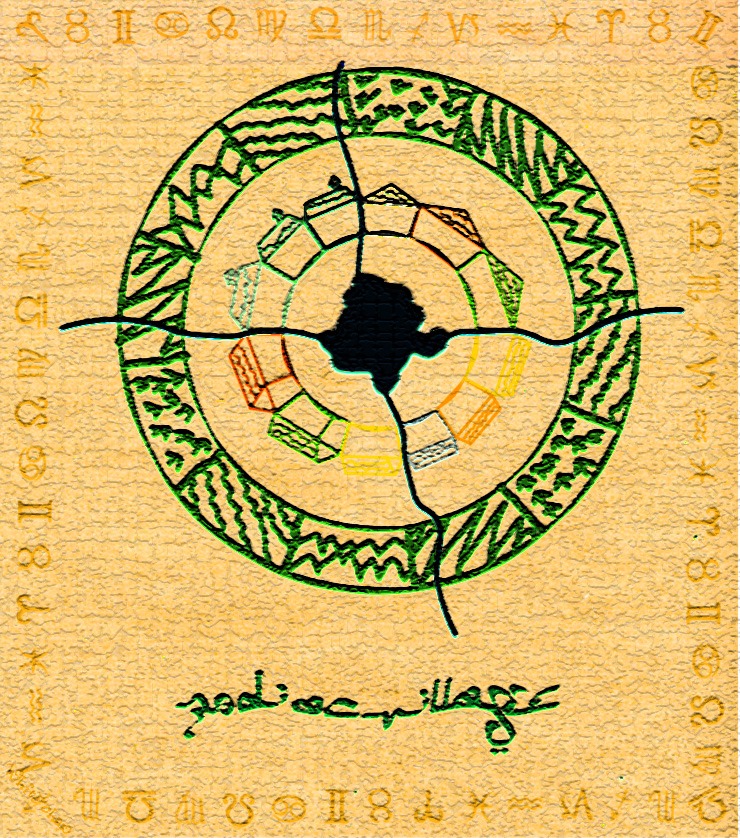 zodiac village